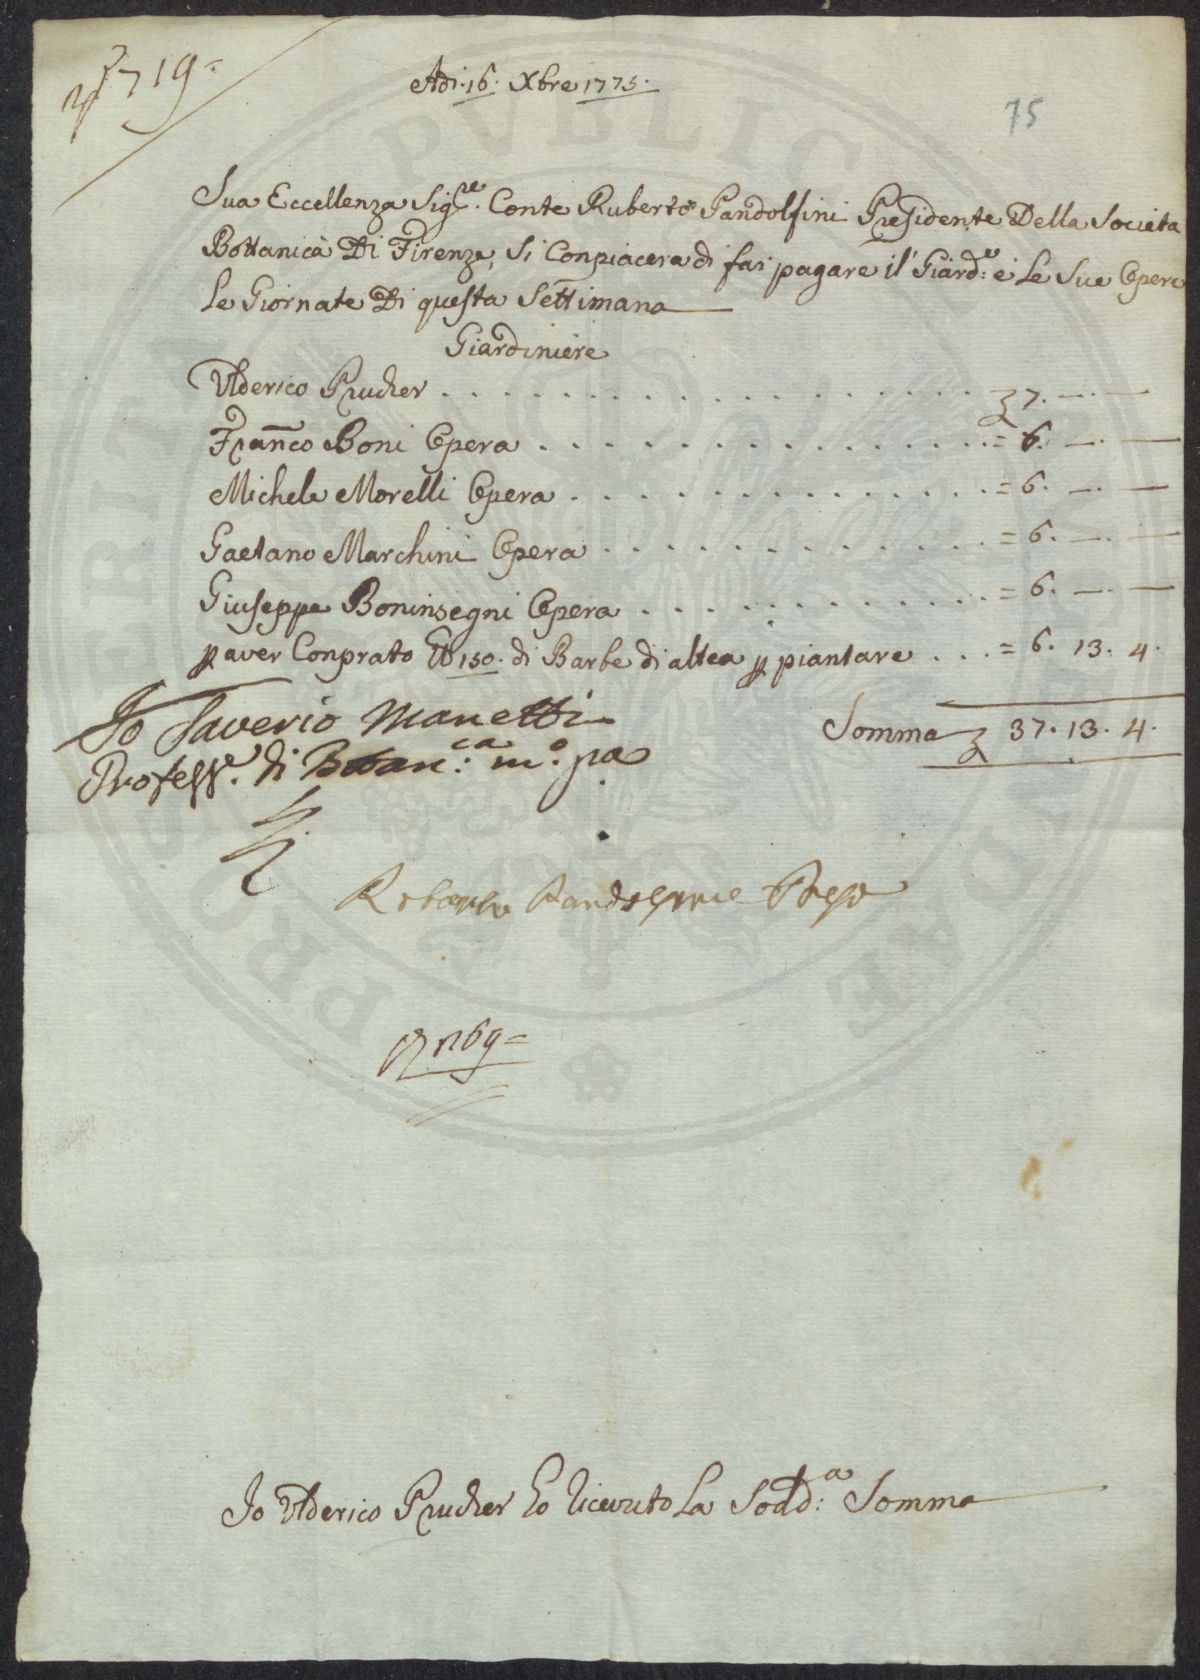 719=
Adi. 16. Xbre 1775.
75
Sua Eccellenza Sig.re Conte Ruberto Pandolfini Presidente Della Societa
Bottanica Di Firenze, Si Conpiacera di far pagare il Giard.e e Le Sue Opere
Le Giornate Di questa Settimana
Giardiniere
Ulderico Prucher . . . . . . . . . . . . . . . . 7. —. —
Fran̅co Boni Opera . . . . . . . . . . . . . . = 6. —. —
Michele Morelli Opera . . . . . . . . . . . . . = 6. —. —
Gaetano Marchini Opera . . . . . . . . . . . . = 6. —. —
Giuseppe Boninsegni Opera . . . . . . . . . . . = 6. —. —
p aver Conprato 150. di Barbe di altea p piantare . . . = 6. 13. 4.
Somma 37. 13. 4.
Io Saverio Manetti
Profess.e di Botan.ca m.o pa
Roberto Pandolfini Preside
169=
Io Ulderico Prucher ho ricevuto La Sodd.a Somma